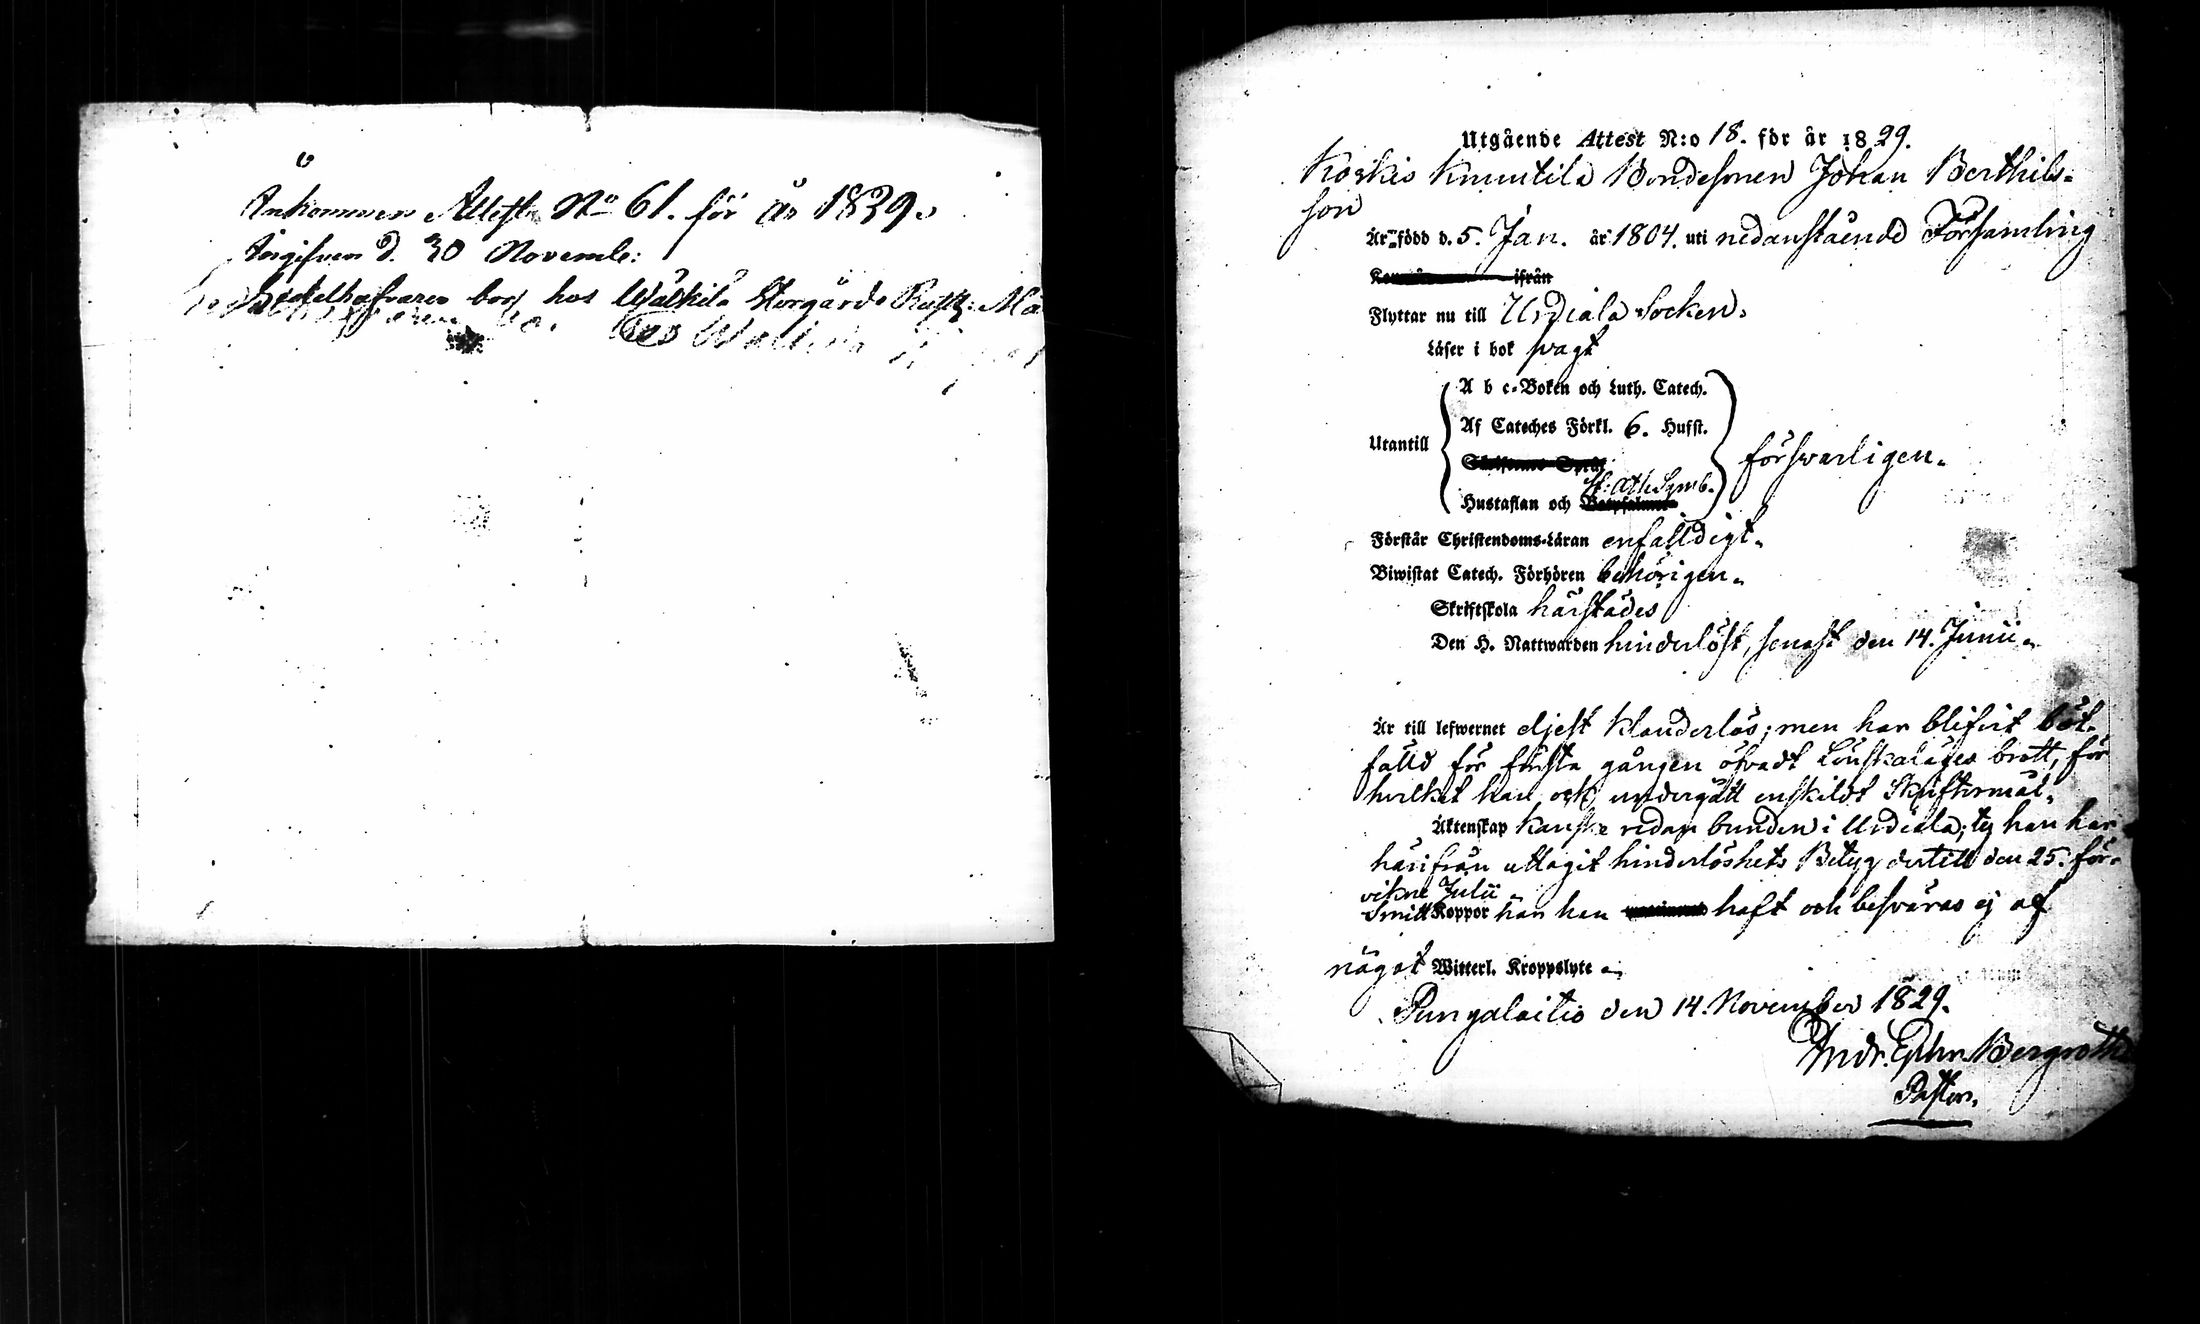 Ankommen Attest No 61. för år 1839.
Ingifven d. 30 Novemb:
Sedelhafvaren bor hos Walkila Storgårds Rustg: Ma
hos Walkila
Utgående Attest N:o 18. för år 1829.
Koskis Knuutila Bondesonen Johan Berthils-
son
Är född d. 5. Jan. år 1804. uti nedanstående Församling
ifrån
Flyttar nu till Urdiala Socken.
Läser i bok svagt
A b c-Boken och Luth. Catech.
Af Cateches Förkl. 6. Hufst.
Utantill försvarligen.
Skriftenes Språk
St: Ath. Symb.
Hustaflan och
Förstår Christendoms-Läran enfalldigt.
Biwistat Catech. Förhören behörigen.
Skriftskola härstädes
Den H. Nattwarden hinderlöst, senast den 14. Junii.
Är till lefwernet eljest klanderlös; men har blifvit böt-
fälld för första gången öfvadt Lönskaläges brott, för
hvilket han ock undergått enskildt Skriftermål.
Äktenskap kanske redan bunden i Urdiala; ty han har
härifrån uttagit hinderlöshets Betyg dertill den 25. för-
vikne Julii.
Smitt Koppor har han haft och besväras ej af
något Witterl. Kroppslyte.
Pungalaitio den 14. November 1829.
Andr. Ephr. Bergroth
Pastor.